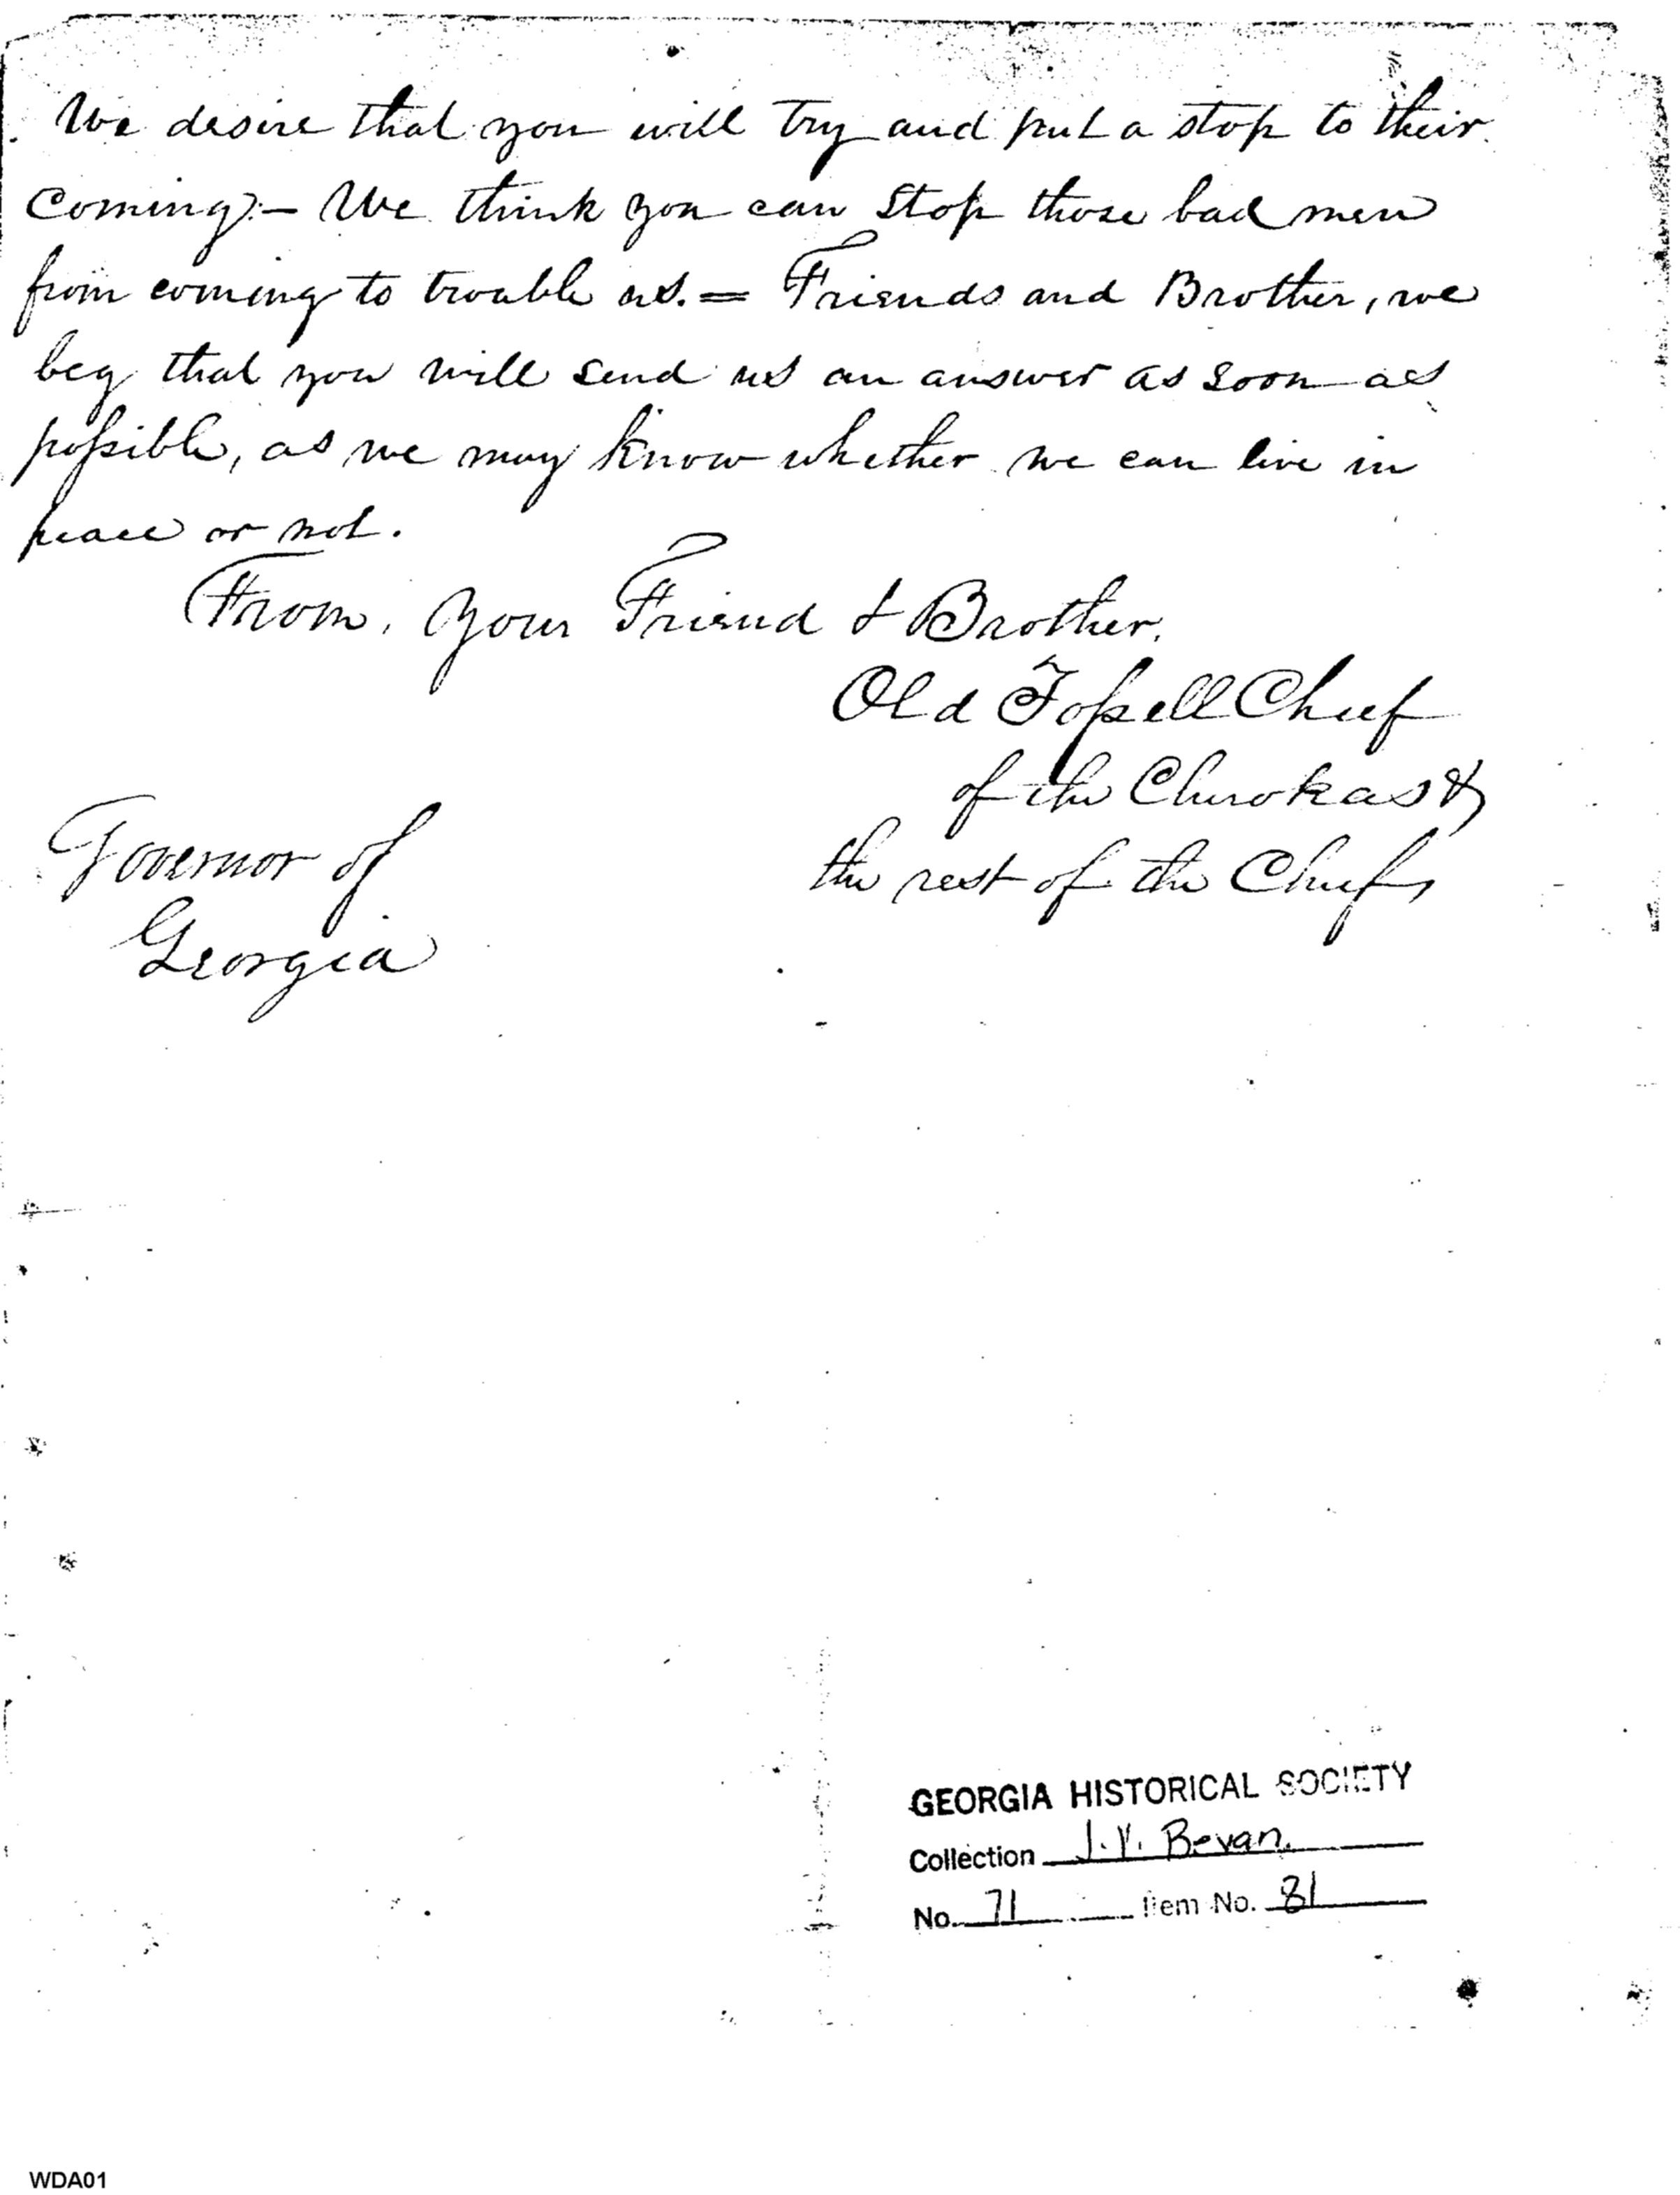 We desire that you will try and put a stop to their
coming:– We think you can stop those bad men
from coming to trouble us. = Friends and Brother, we
beg that you will send us an answer as soon as
possible, as we may know whether we can live in
peace or not.
From, your Friend & Brother.
Old Tossell Chief
of the Cherokas &
the rest of the Chiefs
Governor of
Georgia
GEORGIA HISTORICAL SOCIETY
Collection J.V. Bevan.
No. 71 Item No. 81
WDA01